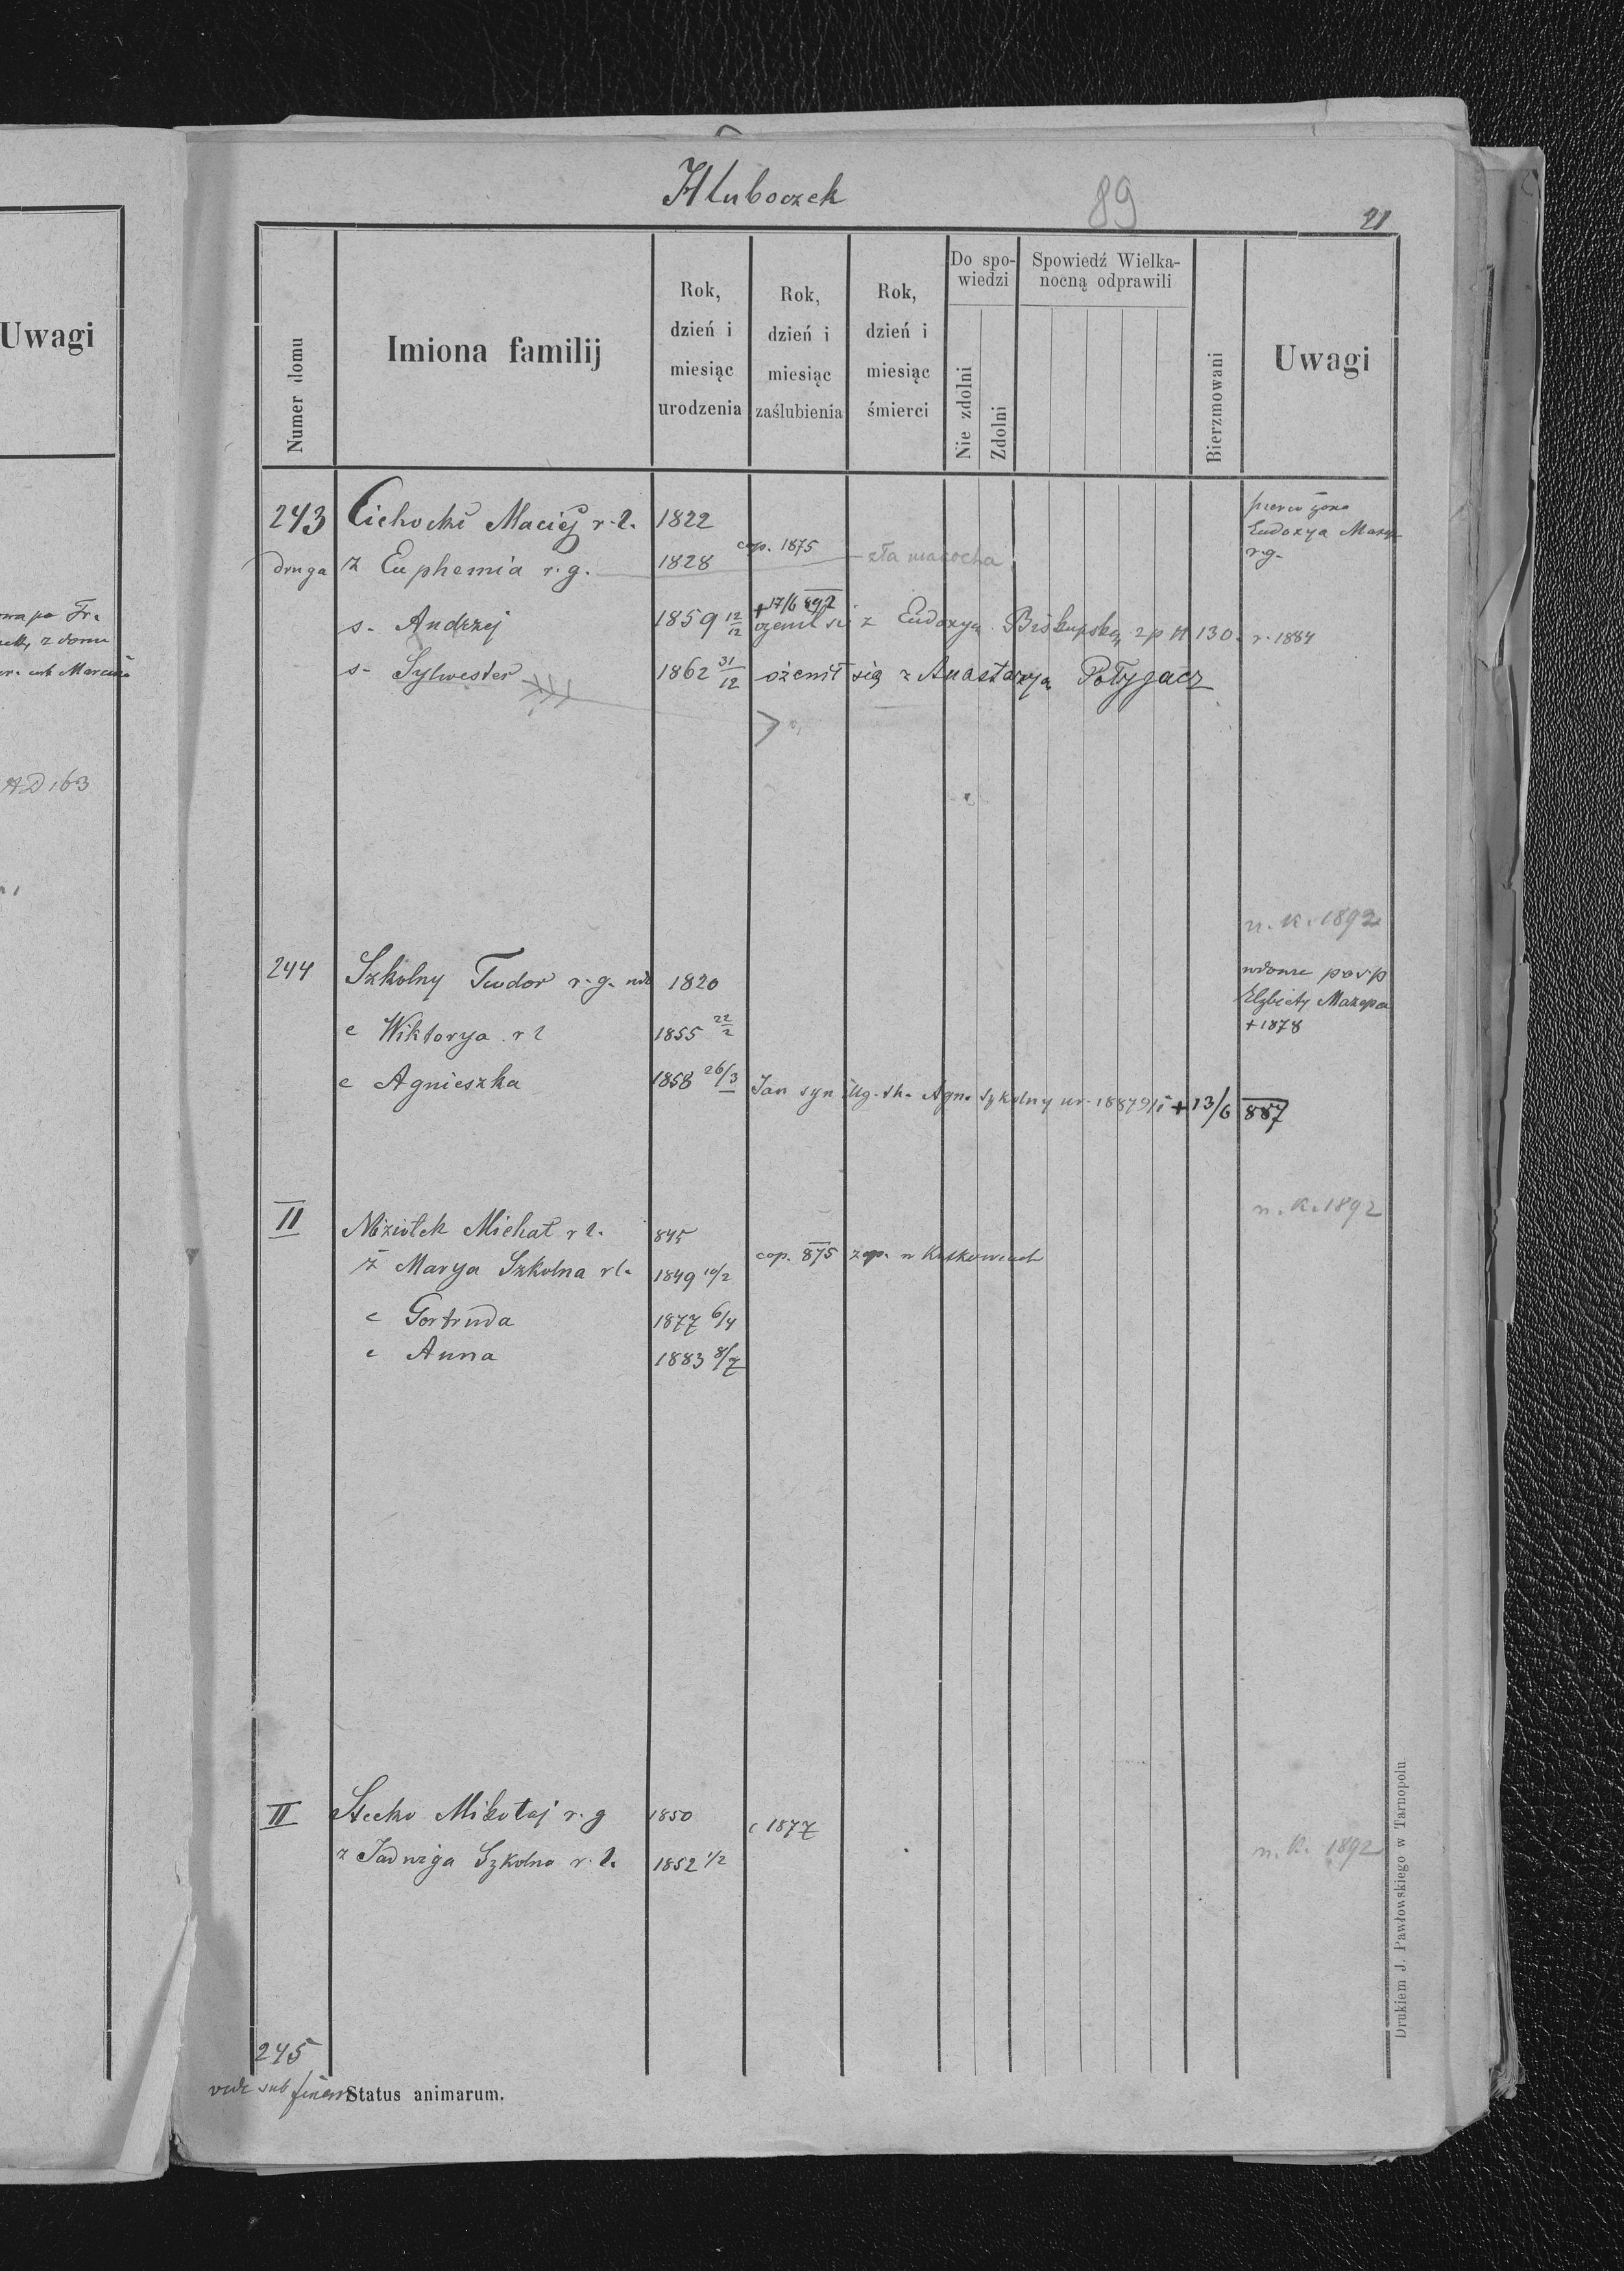 Hluboczek
89
21
Numer domu
Imiona familij
Rok, dzień i miesiąc urodzenia
Rok, dzień i miesiąc zaślubienia
Rok, dzień i miesiąc śmierci
Do spowiedzi
Nie zdolni
Zdolni
Spowiedź Wielkanocną odprawili
Bierzmowani
Uwagi
243 Cichocki Maciej r. l. 1822
żona
Eudoxya
r.g.
druga ż Euphemia r. g. 1828 cop. 1875 zła macocha
s. Andrzej 1859 12/12 +17/6 892 ożenił się z Eudoxyą Biskupską zp N 130. r. 1884
s. Sylwester 1862 31/12 ożenił się z Anastazyą Połygacz
n. k. 1892
244 Szkolny Teodor r. g. 1820
wdowiec po ś.p.
Elżbiety Mazepa
+ 1878
c Wiktorya r l 1855 22/2
c Agnieszka 1858 26/3 Jan syn illg. th. Agn. Szkolny ur. 1887 9/5 + 13/6 887
n. k. 1892
II Niziołek Michał r l. 845
ż Marya Szkolna r l. 1849 10/2 cop. 875 zap. w Kutkowcach
c Gertruda 1877 6/4
c Anna 1883 8/7
II Stecko Mikołaj r. g 1850 c 1877
ż Jadwiga Szkolna r. l. 1852 1/2
n. k. 1892
245
vide sub finem
Status animarum.
Drukiem J. Pawłowskiego w Tarnopolu
Uwagi
z domu
AD 163